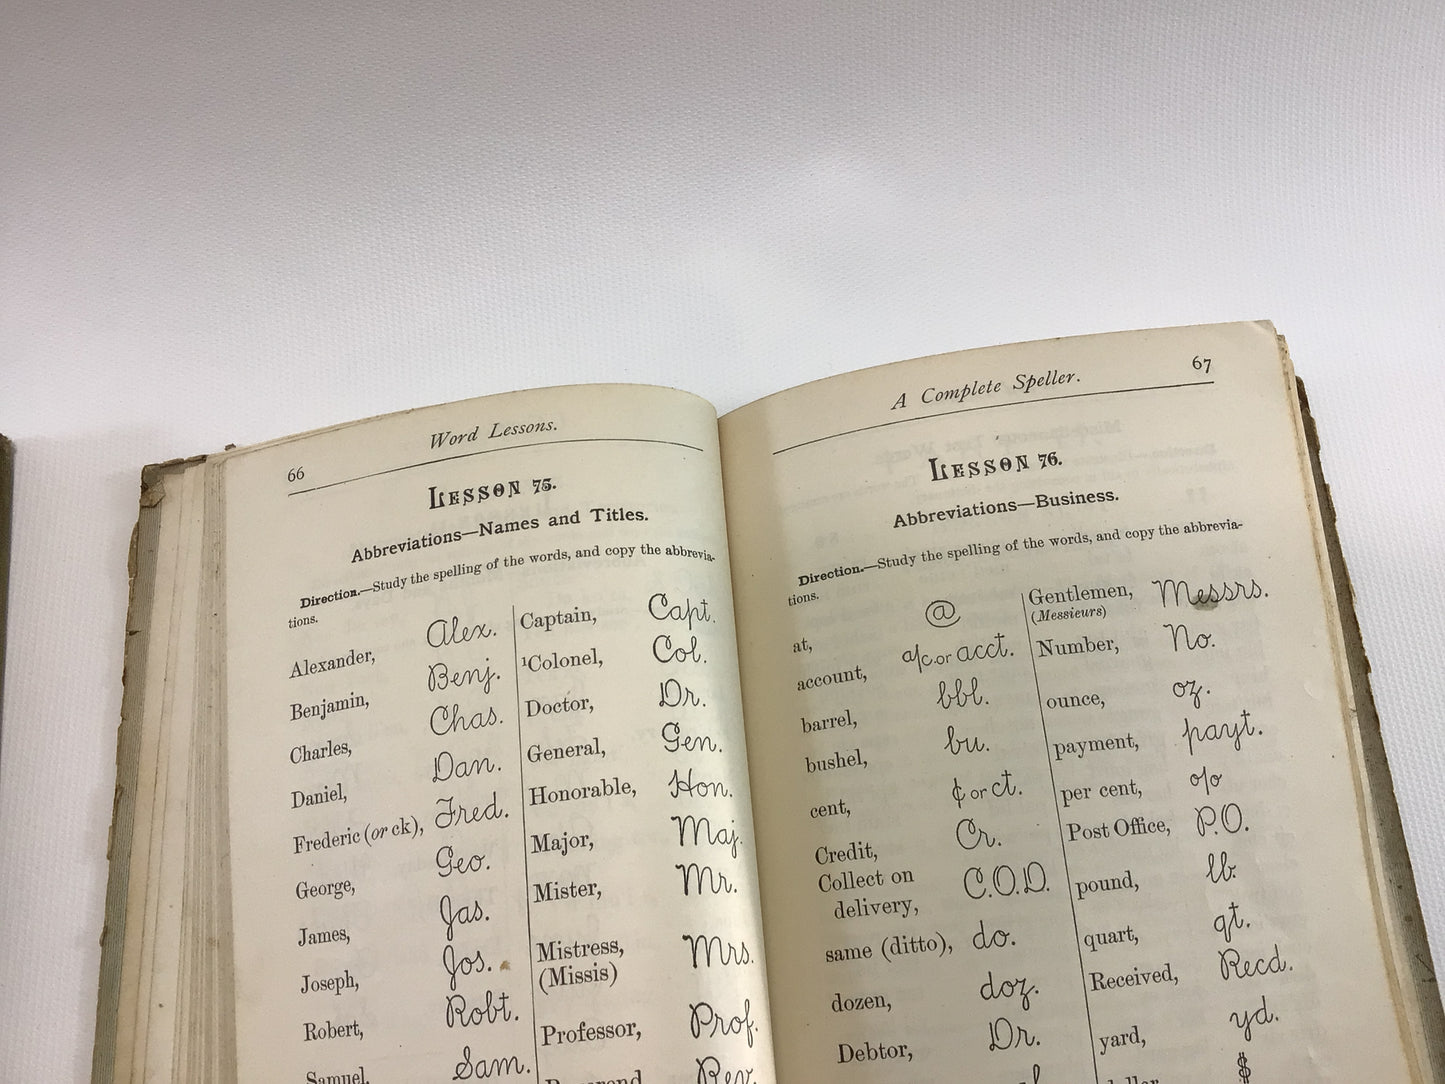 66
Word Lessons.
LESSON 75.
Abbreviations—Names and Titles.
Direction.—Study the spelling of the words, and copy the abbrevia-
tions.
Alexander, Alex.
Benjamin, Benj.
Charles, Chas.
Daniel, Dan.
Frederic (or ck), Fred.
George, Geo.
James, Jas.
Joseph, Jos.
Robert, Robt.
Samuel, Sam.
Captain, Capt.
¹Colonel, Col.
Doctor, Dr.
General, Gen.
Honorable, Hon.
Major, Maj.
Mister, Mr.
Mistress, Mrs.
(Missis)
Professor, Prof.
Reverend Rev.
A Complete Speller.
67
LESSON 76.
Abbreviations—Business.
Direction.—Study the spelling of the words, and copy the abbrevia-
tions.
at, @
account, a/c or acct.
barrel, bbl.
bushel, bu.
cent, ¢ or ct.
Credit, Cr.
Collect on
delivery, C.O.D.
same (ditto), do.
dozen, doz.
Debtor, Dr.
Gentlemen, Messrs.
(Messieurs)
Number, No.
ounce, oz.
payment, payt.
per cent, o/o
Post Office, P.O.
pound, lb.
quart, qt.
Received, Recd.
yard, yd.
dollar $